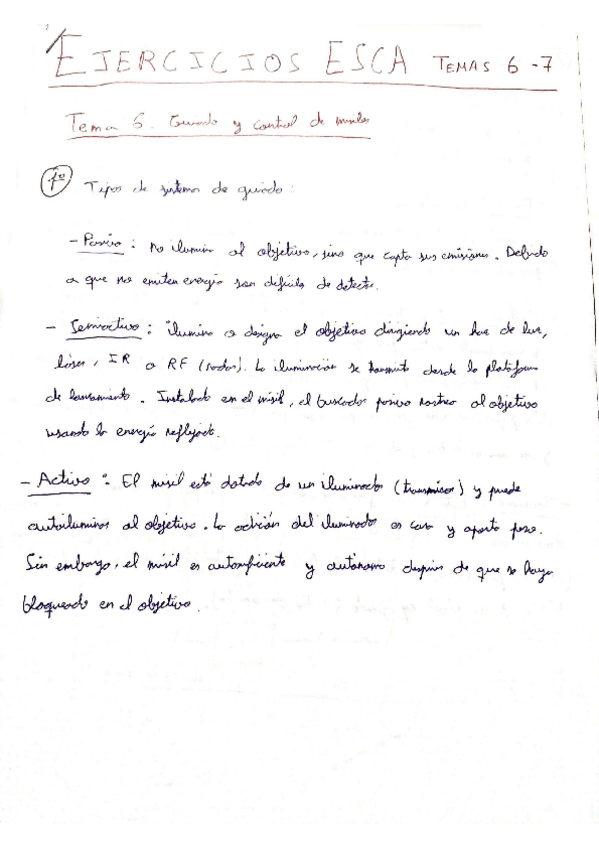 EJERCICIOS ESCA TEMAS 6-7
Tema 6. Guiado y control de misiles
1º Tipos de sistemas de guiado:
- Pasivo: no ilumina al objetivo, sino que capta sus emisiones. Debido
a que no emiten energía son difíciles de detectar.
- Semiactivo: ilumina o designa el objetivo dirigiendo un haz de luz,
láser, IR o RF (radar). La iluminación se transmite desde la plataforma
de lanzamiento. Instalado en el misil, el buscador pasivo rastrea al objetivo
usando la energía reflejada.
- Activo: El misil está dotado de un iluminador (transmisor) y puede
autoiluminar al objetivo. La adición del iluminador es cara y aporta peso.
Sin embargo, el misil es autosuficiente y autónomo después de que se haya
bloqueado en el objetivo.